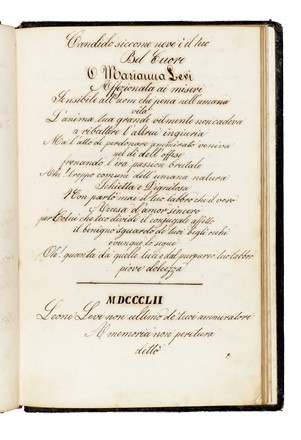 Candido siccome neve è il tuo
Bel Cuore
O Marianna Levi
Affezionata ai miseri
Sensibile all'uom che pena nell'umana
vita
L'anima tua grande vilmente non cadeva
a ribattere l'altrui ingiuria
Ma l'atto di perdonare ammirato veniva
nel dì dell'offese
frenando l'ira passion brutale
Ahi troppo comune dell'umana natura
Schietta e Dignitosa
Non partò mai il tuo labbro che il vero
Accesa d'amor sincero
per Colui che teco divide il conjugale affetto
il benigno sguardo de' tuoi begli occhi
ovunque lo segue
Oh! quanta da quelle luci e dal purpureo tuo labbro
piove dolcezza
MDCCCLII
Leone Levi non ultimo de' tuoi ammiratori
A memoria non peritura
dettò